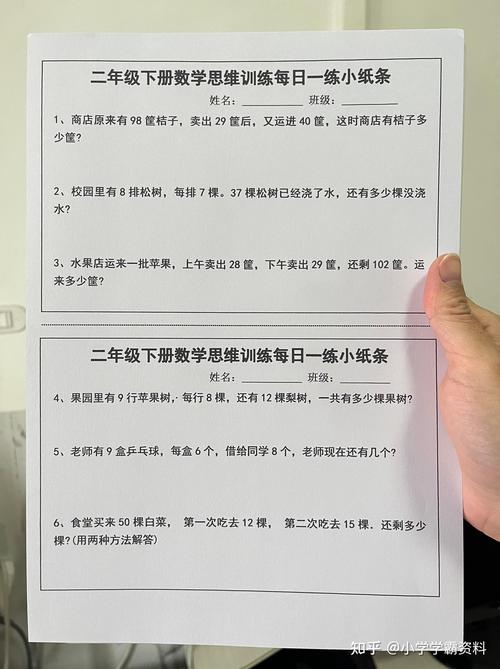 二年级下册数学思维训练每日一练小纸条
姓名：__________ 班级：_________
1、商店原来有 98 筐桔子，卖出 29 筐后，又运进 40 筐，这时商店有桔子多
少筐?
2、校园里有 8 排松树，每排 7 棵。37 棵松树已经浇了水，还有多少棵没浇
水?
3、水果店运来一批苹果，上午卖出 28 筐，下午卖出 29 筐，还剩 102 筐。运
来多少筐?
二年级下册数学思维训练每日一练小纸条
姓名：__________ 班级：________
4、果园里有 9 行苹果树，每行 8 棵，还有 12 棵梨树，一共有多少棵果树?
5、老师有 9 盒乒乓球，每盒 6 个，借给同学 8 个，老师现在还有几个?
6、食堂买来 50 棵白菜， 第一次吃去 12 棵， 第二次吃去 15 棵．还剩多少
棵?(用两种方法解答)
知乎 @小学学霸资料